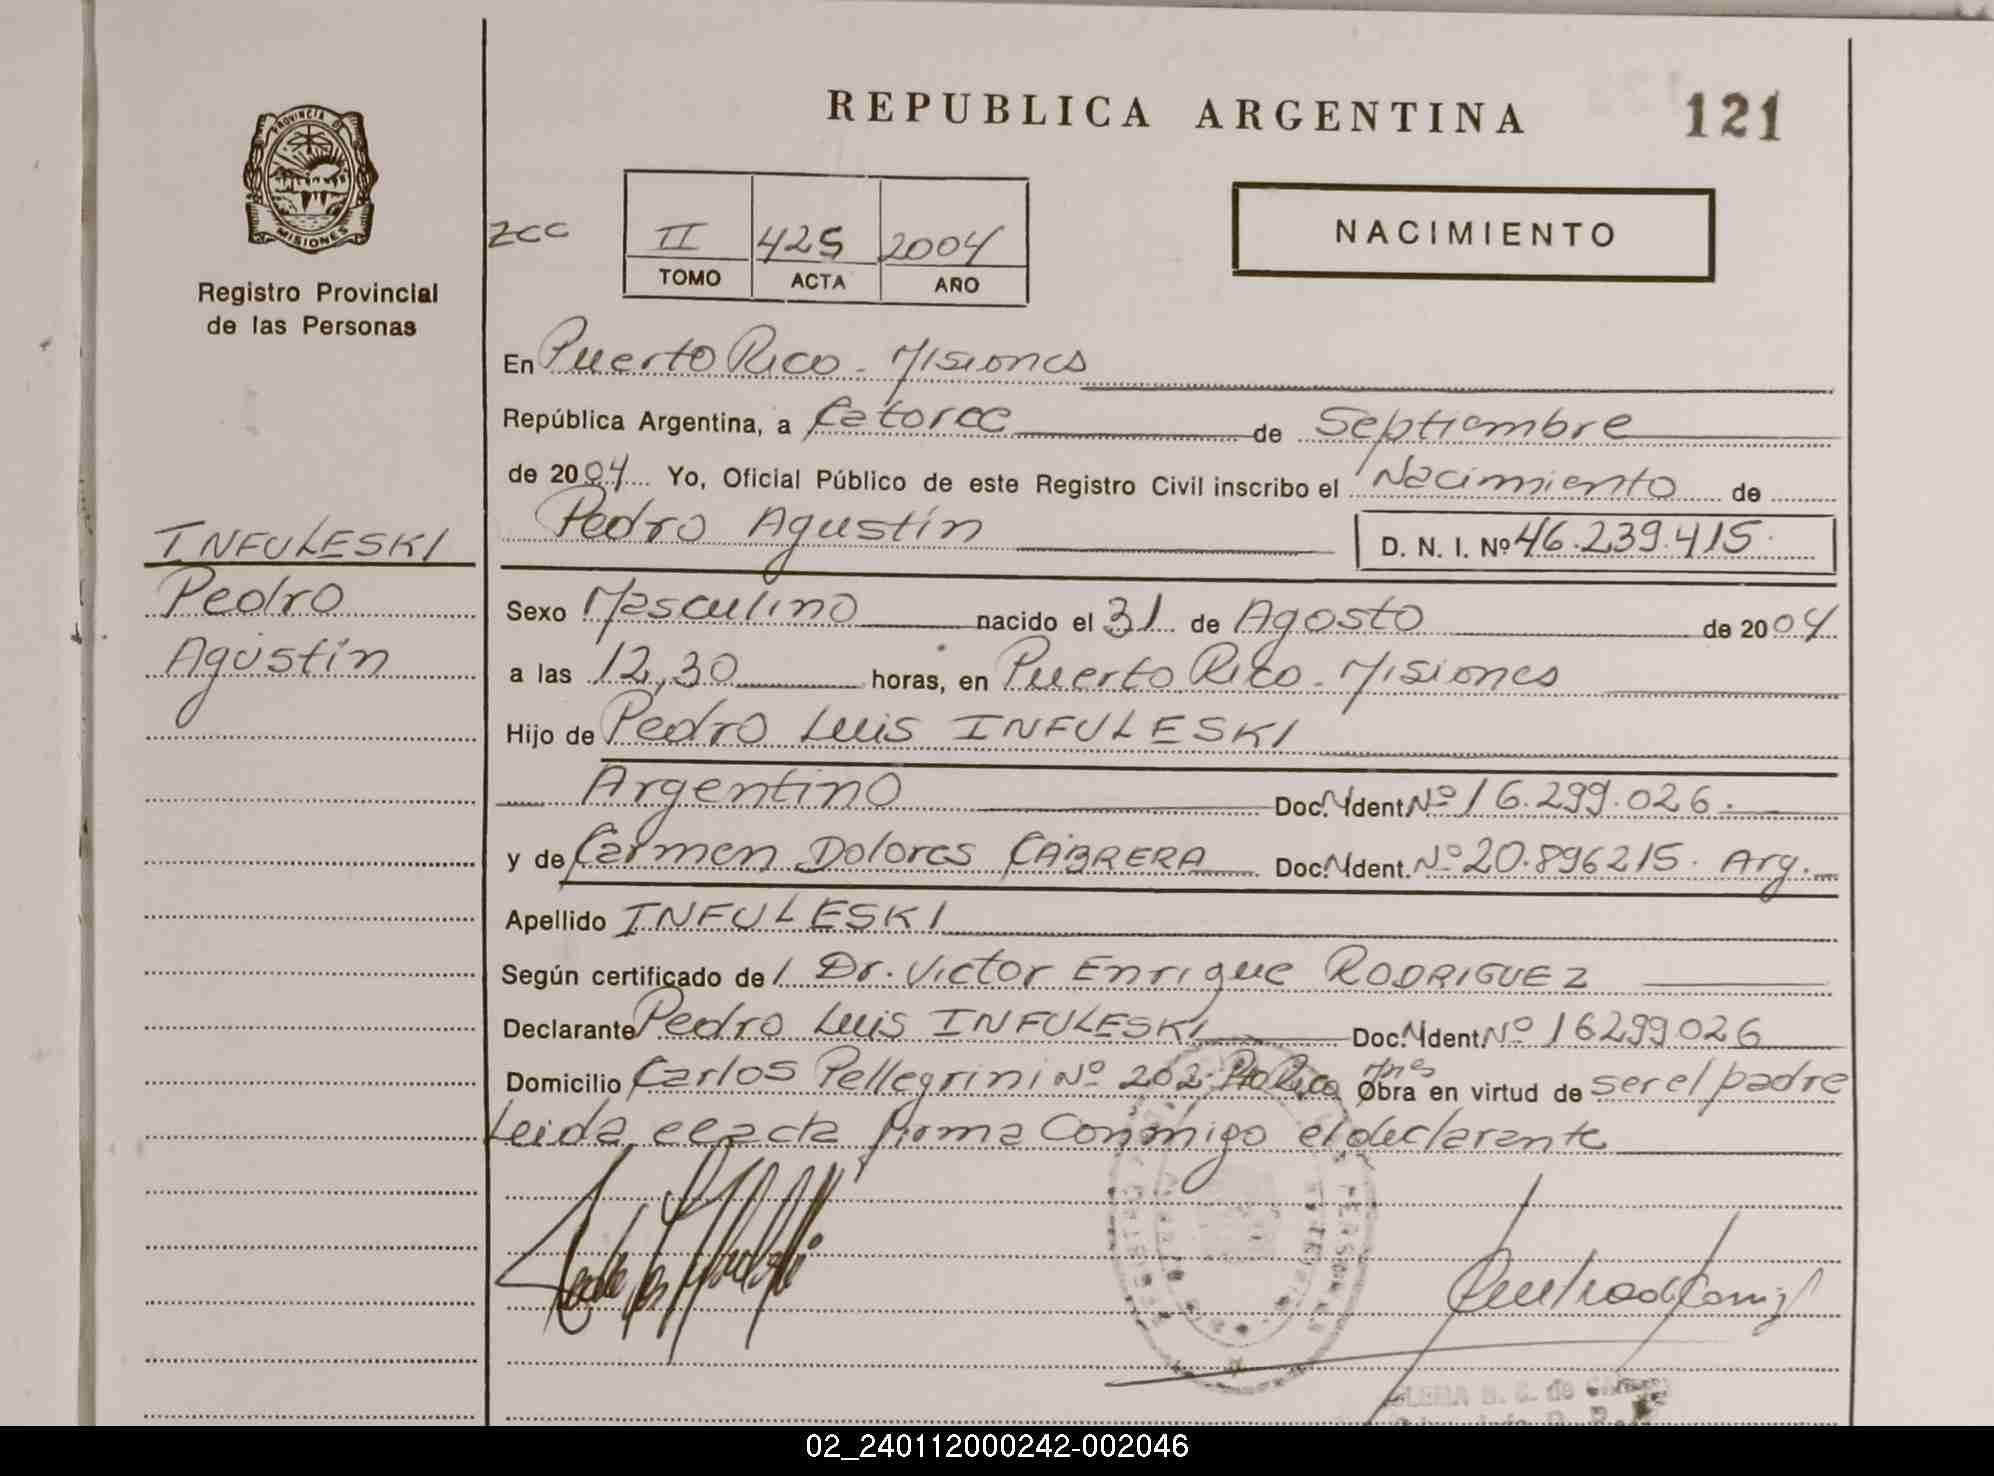 REPUBLICA ARGENTINA
121
PROVINCIA DE
MISIONES
Registro Provincial
de las Personas
zcc
II 425 2004
TOMO ACTA AÑO
NACIMIENTO
En Puerto Rico - Misiones
República Argentina, a Catorce de Septiembre
de 2004 Yo, Oficial Público de este Registro Civil inscribo el Nacimiento de
Pedro Agustín D. N. I. Nº 46.239.415.
INFULESKI
Pedro
Agustín
Sexo Masculino nacido el 31 de Agosto de 2004
a las 12,30 horas, en Puerto Rico - Misiones
Hijo de Pedro Luis INFULESKI
Argentino Doc. Ident. Nº 16.299.026.
y de Carmen Dolores CABRERA Doc. Ident. Nº 20.896215. Arg.
Apellido INFULESKI
Según certificado de l Dr. Victor Enrique RODRIGUEZ
Declarante Pedro Luis INFULESKI Doc. Ident. Nº 16299026
Domicilio Carlos Pellegrini Nº 202 - Pto Rico Mnes Obra en virtud de ser el padre
Leida el acta firma Conmigo el declarante
02_240112000242-002046